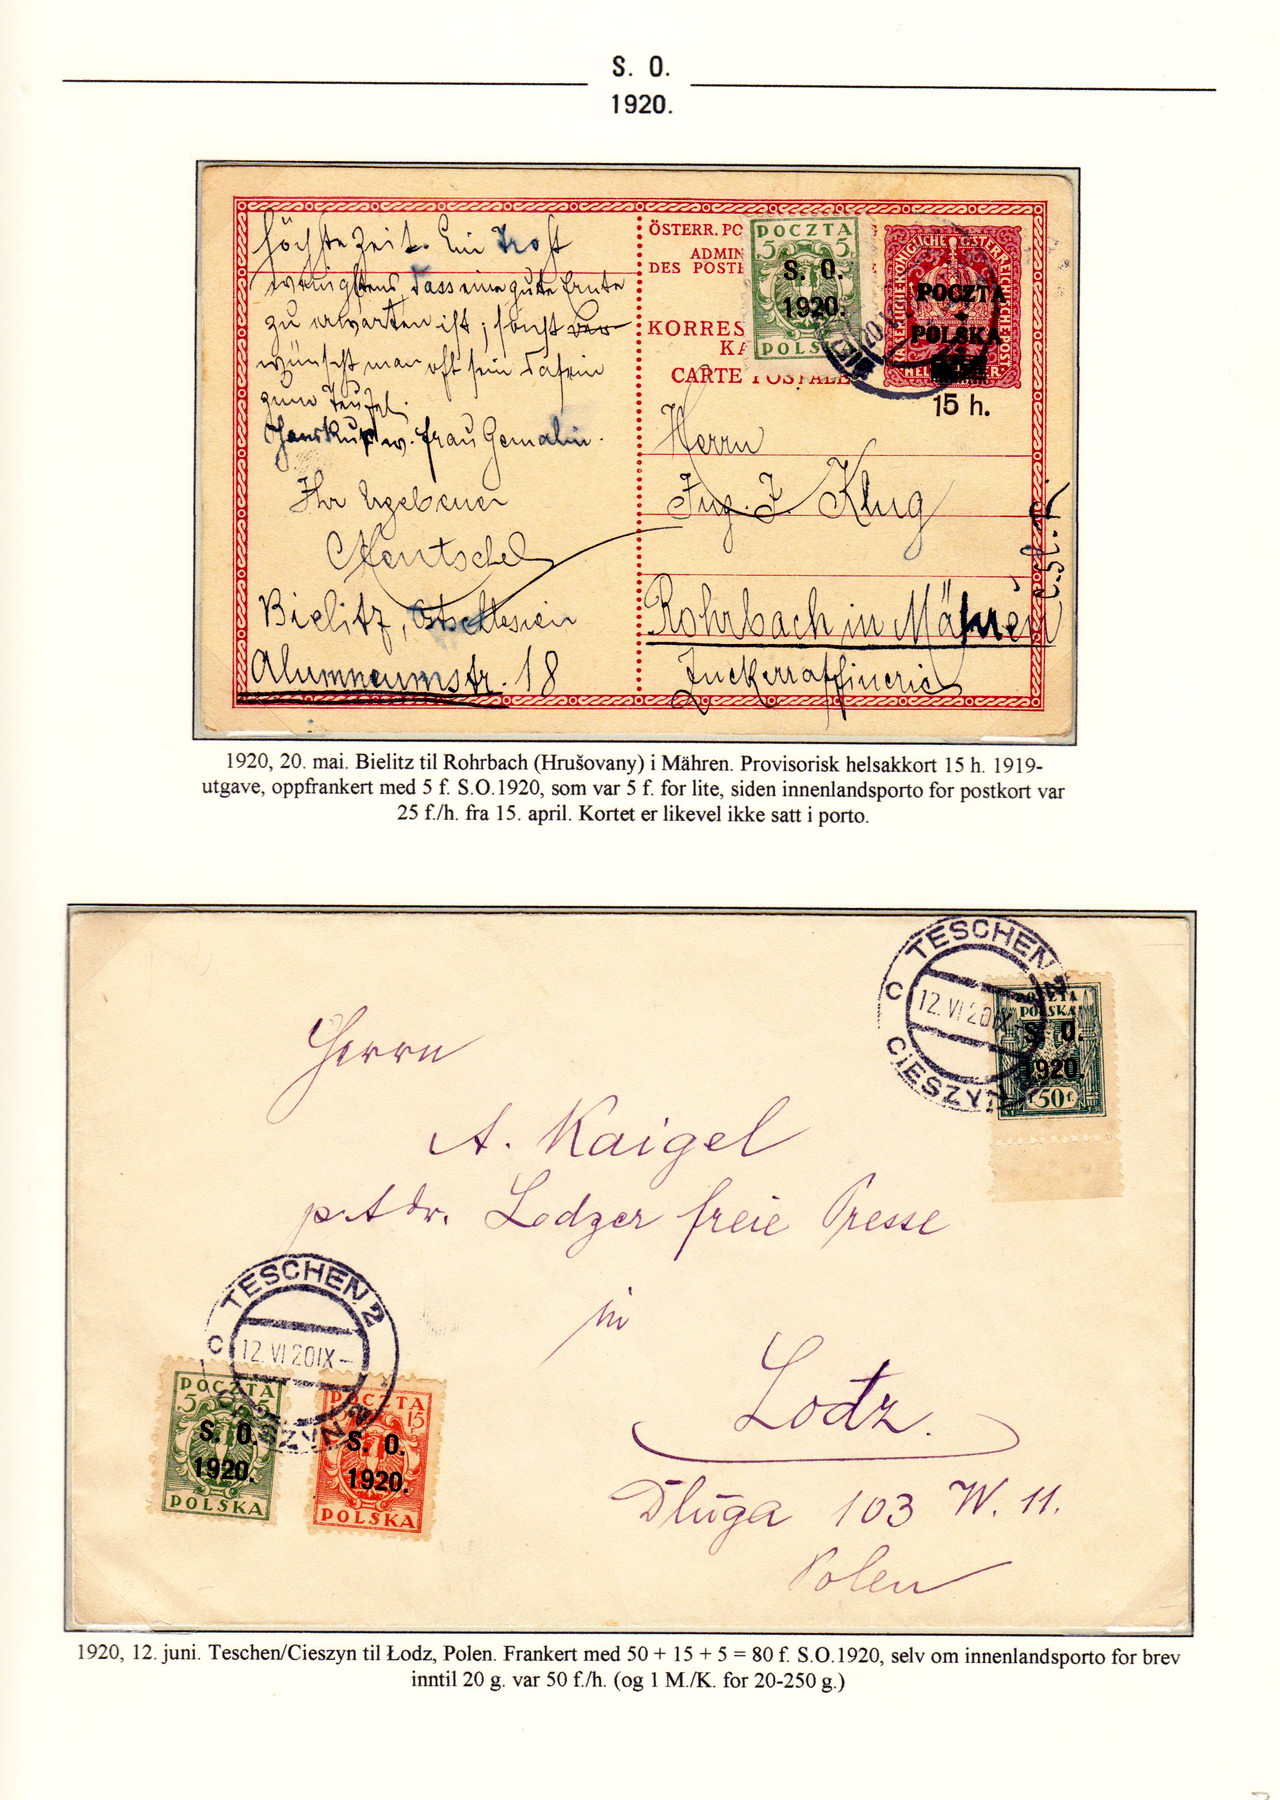 S. O.
1920.
höchste Zeit. Ein Trost
wenigstens dass eine gute Ernte
zu erwarten ist, sonst ver-
wünscht man oft sein Dasein
zum Teufel.
w. Frau Gemalin.
Ihr Ergebener
Hentschel
Bielitz, Ostschlesien
Alumneumstr. 18
ÖSTERR. PO
ADMIN
DES POSTE
KORRES
KA
CARTE POSTALE
POCZTA
5 5
S. O.
1920.
POLSKA
POCZTA
POLSKA
15 h.
Herrn
Ing. J. Klug
Rohrbach in Mähren
Č-Sl. R.
Zuckerraffinerie
1920, 20. mai. Bielitz til Rohrbach (Hrušovany) i Mähren. Provisorisk helsakkort 15 h. 1919-
utgave, oppfrankert med 5 f. S.O.1920, som var 5 f. for lite, siden innenlandsporto for postkort var
25 f./h. fra 15. april. Kortet er likevel ikke satt i porto.
TESCHEN 2
c 12.VI 20 IX-
CIESZYN 2
POCZTA
POLSKA
S. O.
1920.
50 f
Herrn
A. Kaigel
p. Adr. Lodzer freie Presse
in
Lodz.
Długa 103 W. 11.
Polen
TESCHEN 2
c 12.VI 20 IX-
CIESZYN 2
POCZTA
5 5
S. O.
1920.
POLSKA
POCZTA
15
S. O.
1920.
POLSKA
1920, 12. juni. Teschen/Cieszyn til Łodz, Polen. Frankert med 50 + 15 + 5 = 80 f. S.O.1920, selv om innenlandsporto for brev
inntil 20 g. var 50 f./h. (og 1 M./K. for 20-250 g.)